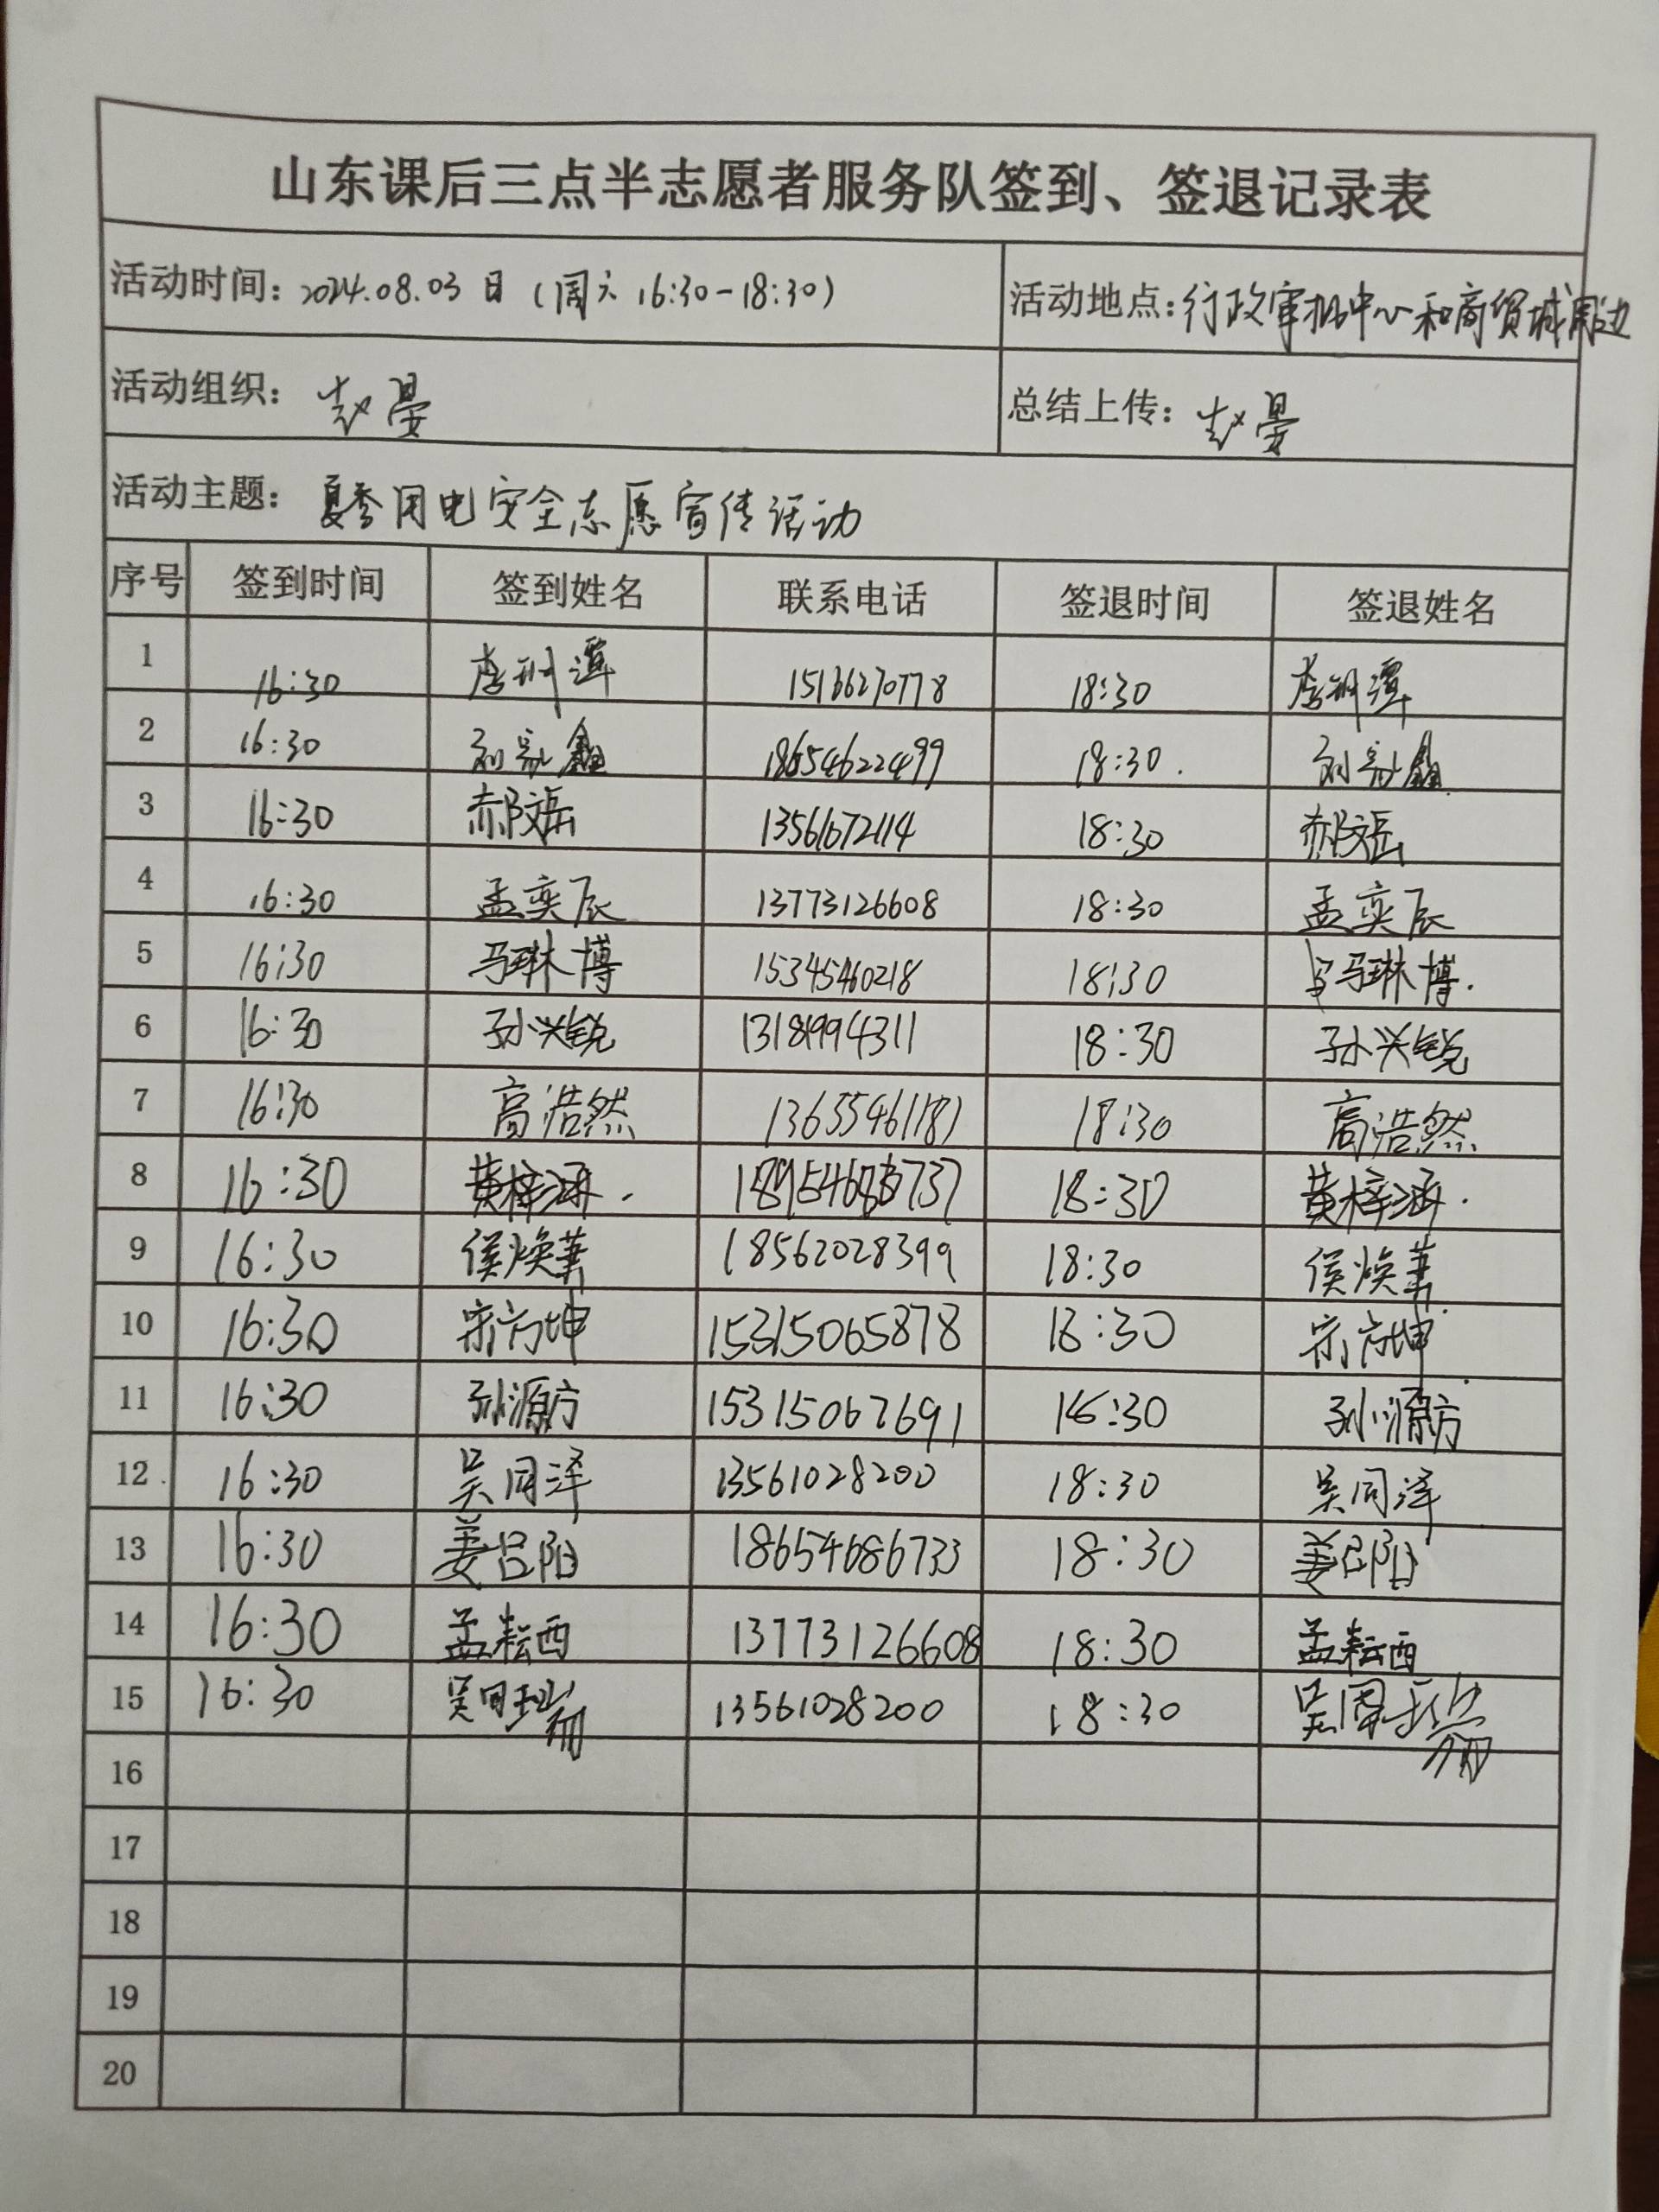 山东课后三点半志愿者服务队签到、签退记录表
活动时间：2024.08.03日（周六 16:30-18:30） 活动地点：行政审批中心和商贸城周边
活动组织：赵晏 总结上传：赵晏
活动主题：夏季用电安全志愿宣传活动
序号 签到时间 签到姓名 联系电话 签退时间 签退姓名
1 16:30 李 潭 18:30 李 潭
2 16:30 刘 鑫 18654622499 18:30 刘 鑫
3 16:30 郝文岳 13561672114 18:30 郝文岳
4 16:30 孟奕辰 13773126608 18:30 孟奕辰
5 16:30 马琳博 15345460218 18:30 马琳博
6 16:30 孙兴锐 13181994311 18:30 孙兴锐
7 16:30 高浩然 13655461181 18:30 高浩然
8 16:30 黄梓涵 18:30 黄梓涵
9 16:30 侯焕 18562028399 18:30 侯焕
10 16:30 宗方坤 15315065878 18:30 宗方坤
11 16:30 孙源方 15315067691 :30 孙源方
12 16:30 吴同泽 13561028200 18:30 吴同泽
13 16:30 姜吕阳 18654686733 18:30 姜吕阳
14 16:30 孟耘西 13773126608 18:30 孟耘西
15 16:30 吴同瑞 13561028200 18:30 吴同瑞
16
17
18
19
20